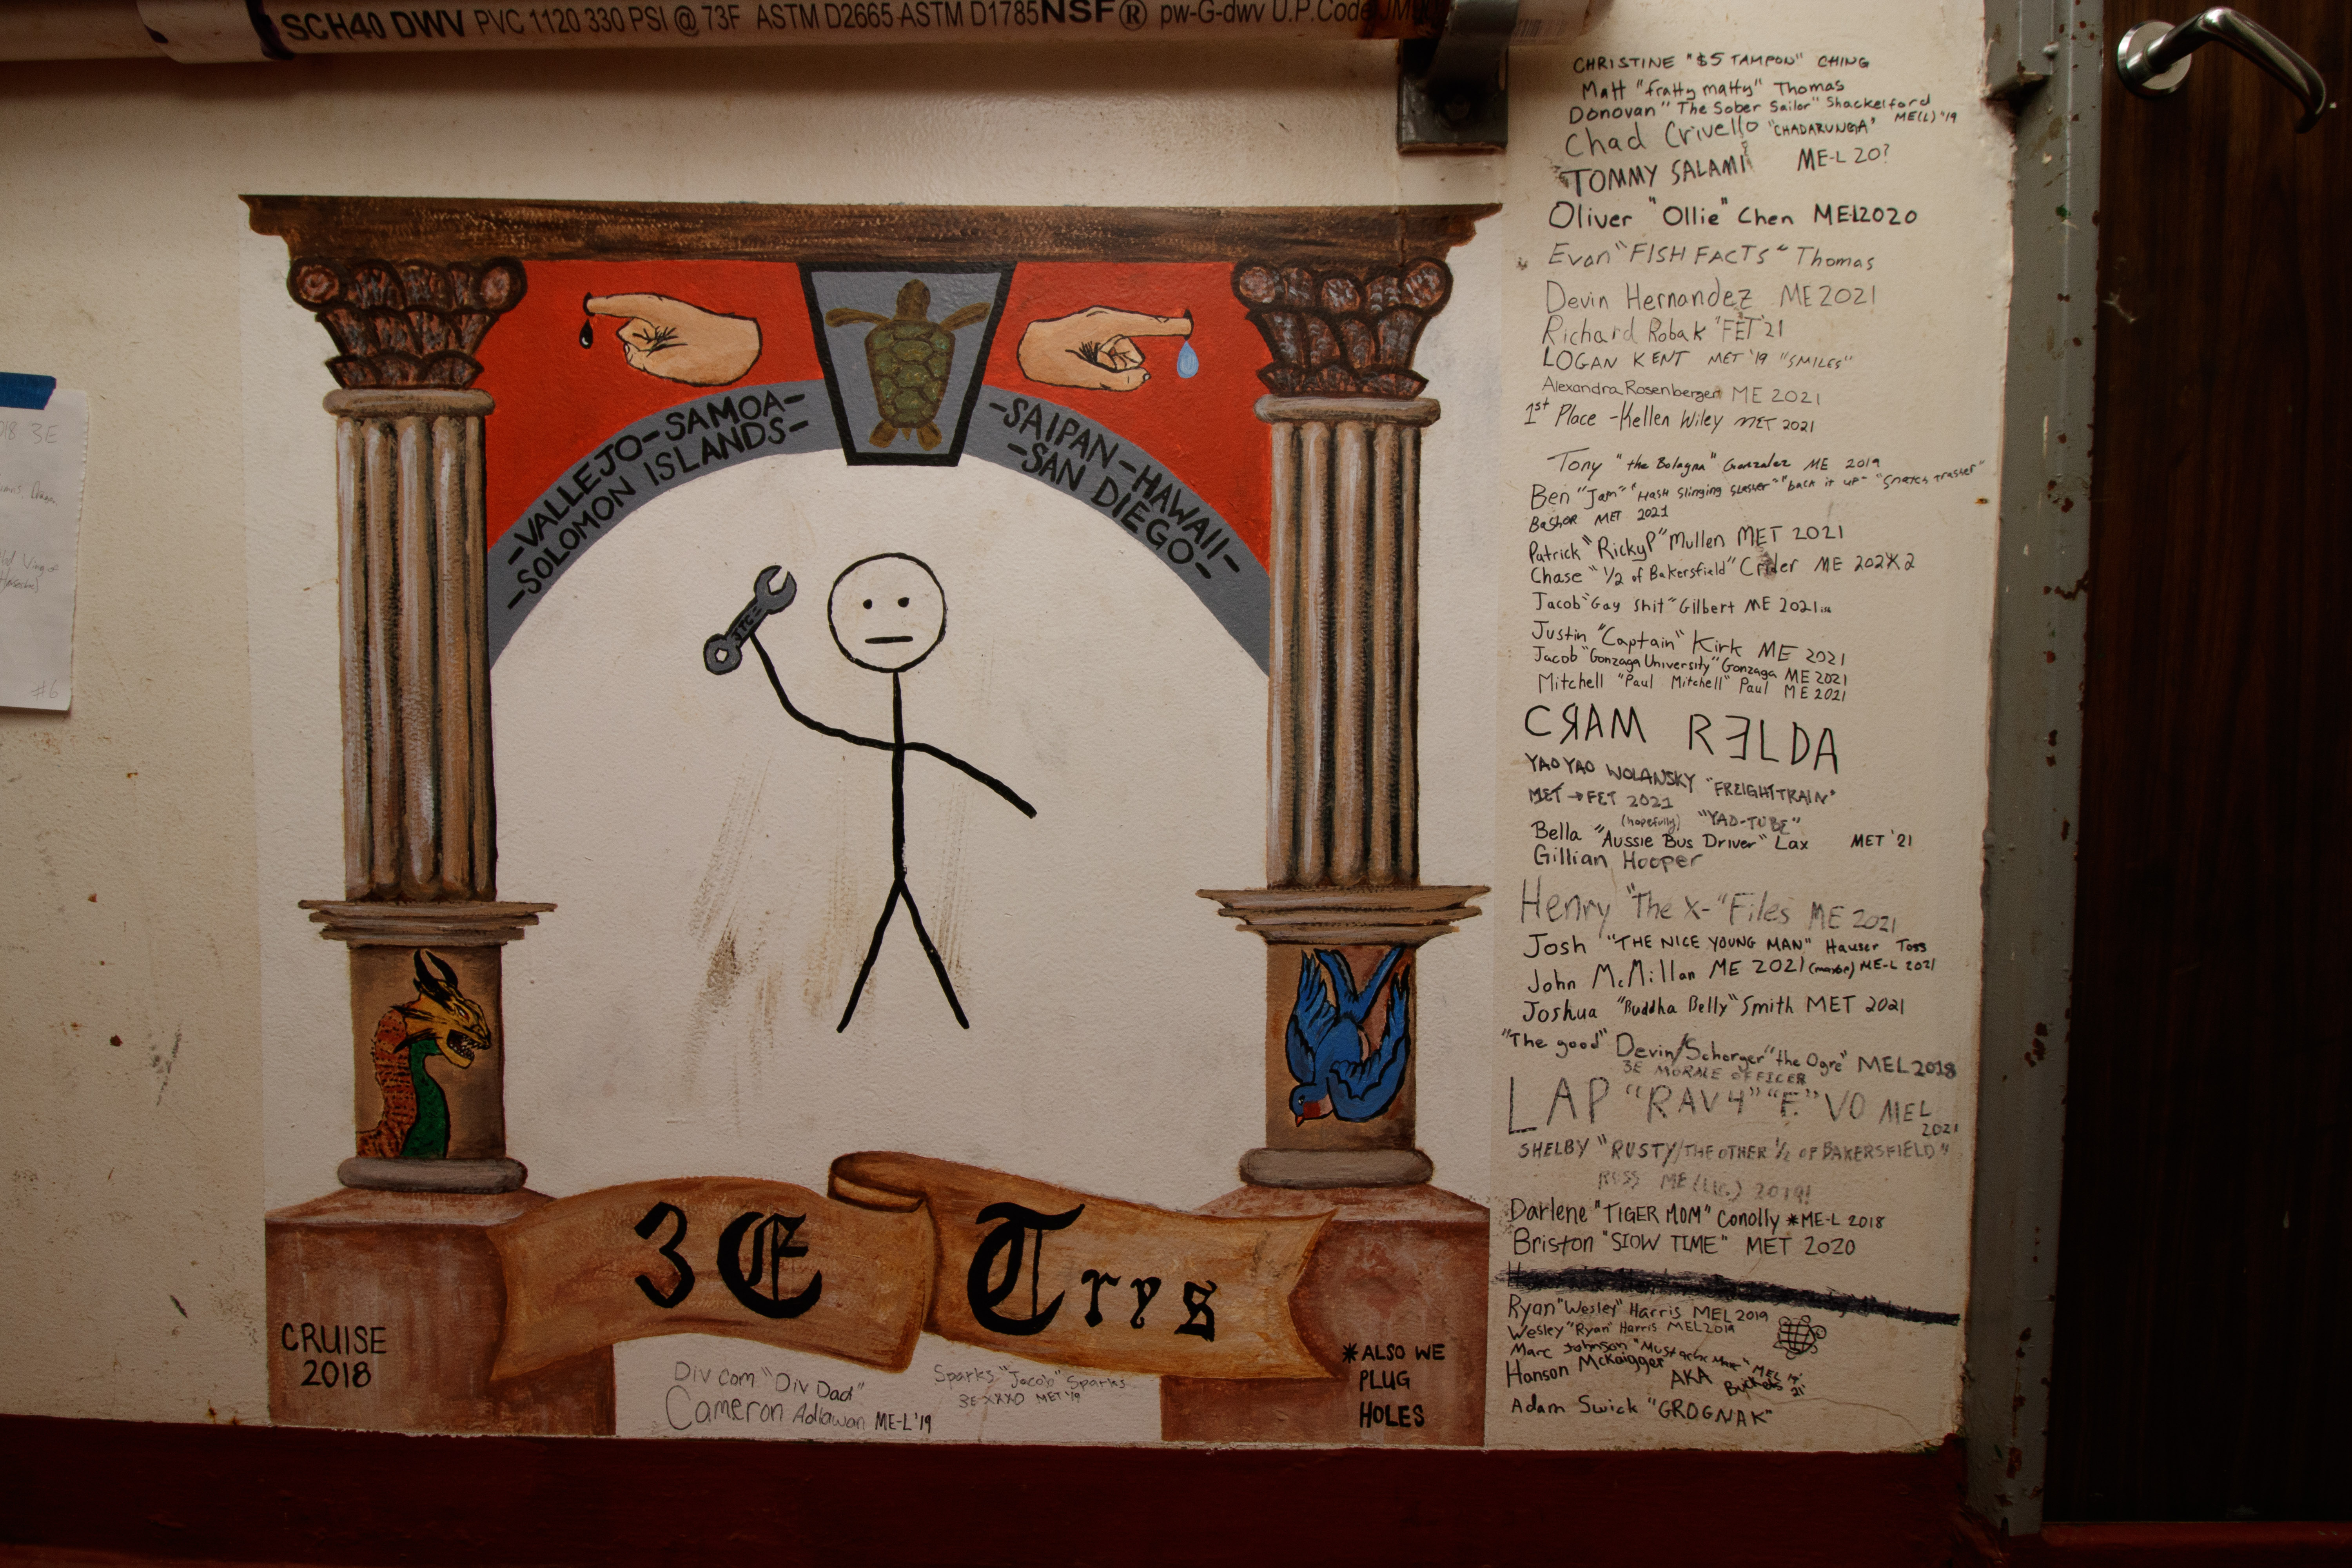 SCH40 DWV PVC 1120 330 PSI @ 73F ASTM D2665 ASTM D1785 NSF® pw-G-dwv U.P.Code
-VALLEJO-SAMOA-
-SOLOMON ISLANDS-
-SAIPAN-HAWAII-
-SAN DIEGO-
3E Trys
CRUISE
2018
*ALSO WE
PLUG
HOLES
Div Com "Div Dad"
Cameron Adlawan ME-L '19
Sparks "Jacob" Sparks
3E XXXO MET '19
3E
#6
CHRISTINE "$5 TAMPON" CHING
Matt "fratty matty" Thomas
Donovan "The Sober Sailor" Shackelford
ME(L) '19
Chad Crivello "CHADARUNGA"
TOMMY SALAMI ME-L 20?
Oliver "Ollie" Chen ME-L2020
Evan "FISH FACTS" Thomas
Devin Hernandez ME 2021
Richard Robak "FET '21
LOGAN KENT MET '19 "SMILES"
Alexandra Rosenberger ME 2021
1st Place - Kellen Wiley MET 2021
Tony "the Bologna" Gonzalez ME 2019
Ben "Jam" "Hash Slinging Slasher" "back it up"
Bashor MET 2021
Patrick "RickyP" Mullen MET 2021
Chase "1/2 of Bakersfield" Crider ME 202X2
Jacob "Gay Shit" Gilbert ME 2021
Justin "Captain" Kirk ME 2021
Jacob "Gonzaga University" Gonzaga ME 2021
Mitchell "Paul Mitchell" Paul ME 2021
CЯAM RƎLDA
YAO YAO WOLANSKY "FREIGHTTRAIN"
MET → FET 2021
(hopefully) "YAO-TUBE"
Bella "Aussie Bus Driver" Lax MET '21
Gillian Hooper
Henry "The X-" Files ME 2021
Josh "THE NICE YOUNG MAN" Hauser Toss
John McMillan ME 2021 (maybe) ME-L 2021
Joshua "Buddha Belly" Smith MET 2021
"The good" Devin/Schorger "the Ogre" MEL 2018
3E MORALE OFFICER
LAP "RAV4" "F." VO MEL
2021
SHELBY "RUSTY/THE OTHER 1/2 OF BAKERSFIELD"
RUSS ME(Lic.) 2019!
Darlene "TIGER MOM" Conolly *ME-L 2018
Briston "SLOW TIME" MET 2020
Ryan "Wesley" Harris MEL 2019
Wesley "Ryan" Harris MEL 2019
Marc Johnson MEL
Hanson McKaigger
AKA Buckets
Adam Swick "GROGNAK"